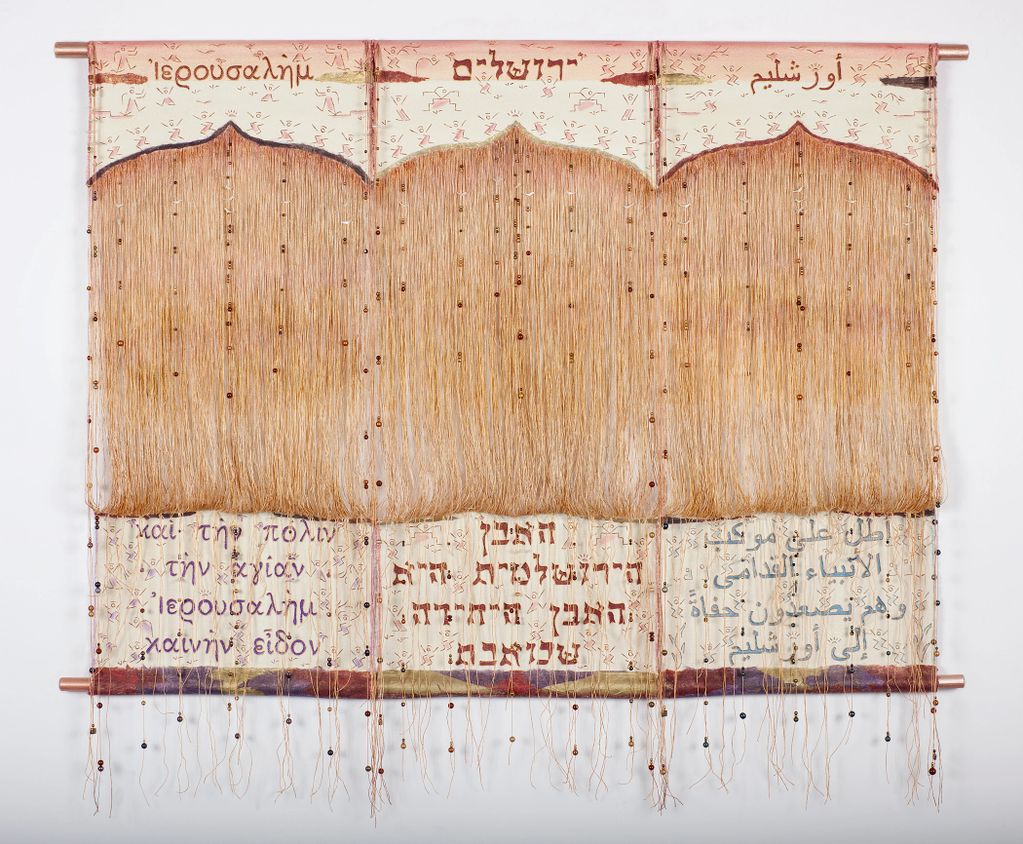 Ἰερουσαλὴμ
ירושלים
أورشليم
καὶ τὴν πόλιν
τὴν ἁγίαν
Ἰερουσαλὴμ
καινὴν εἶδον
האבן
הירושלמית היא
האבן היחידה
שכואבת
أطل على موكب
الأنبياء القدامى
وهم يصعدون حفاةً
إلى أورشليم